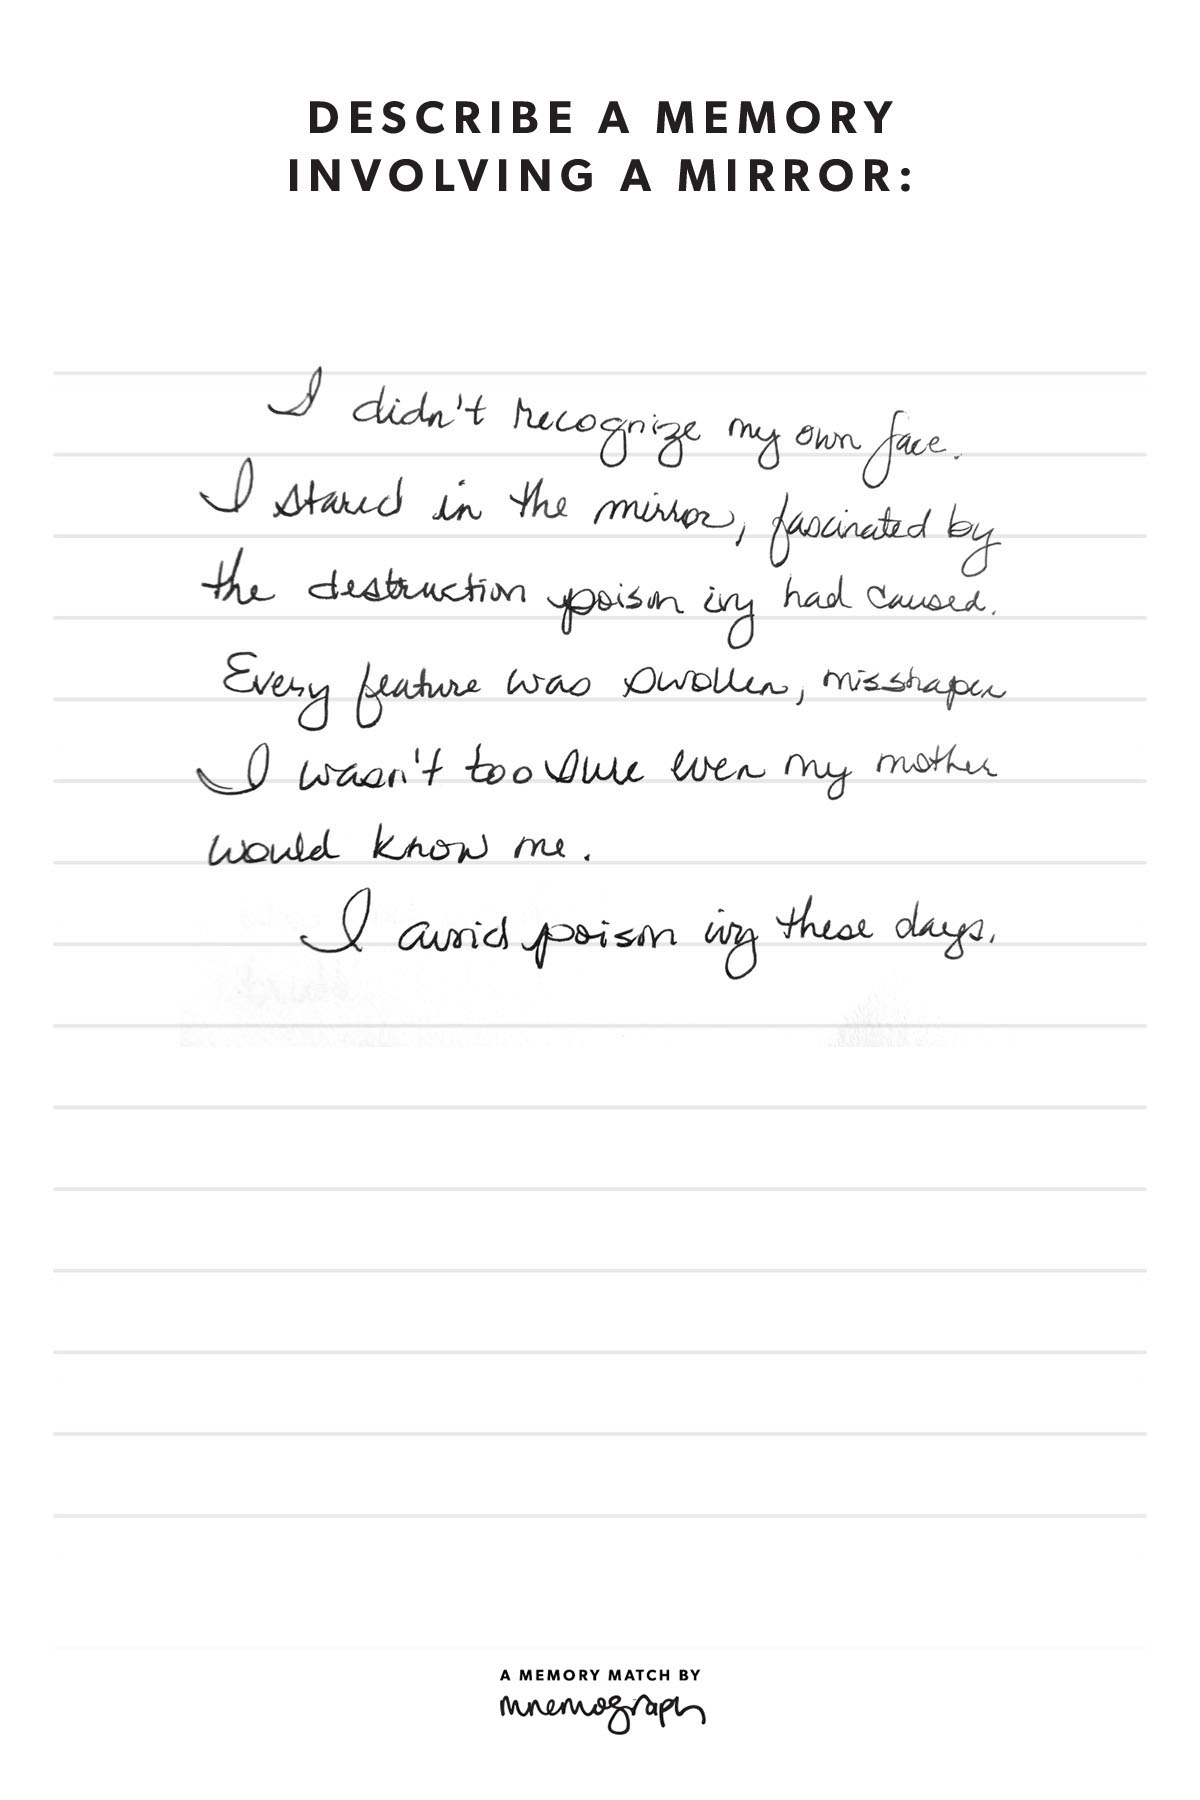 DESCRIBE A MEMORY
INVOLVING A MIRROR:
I didn't recognize my own face.
I stared in the mirror, fascinated by
the destruction poison ivy had caused.
Every feature was swollen, misshapen
I wasn't too sure even my mother
would know me.
I avoid poison ivy these days.
A MEMORY MATCH BY
mnemograph